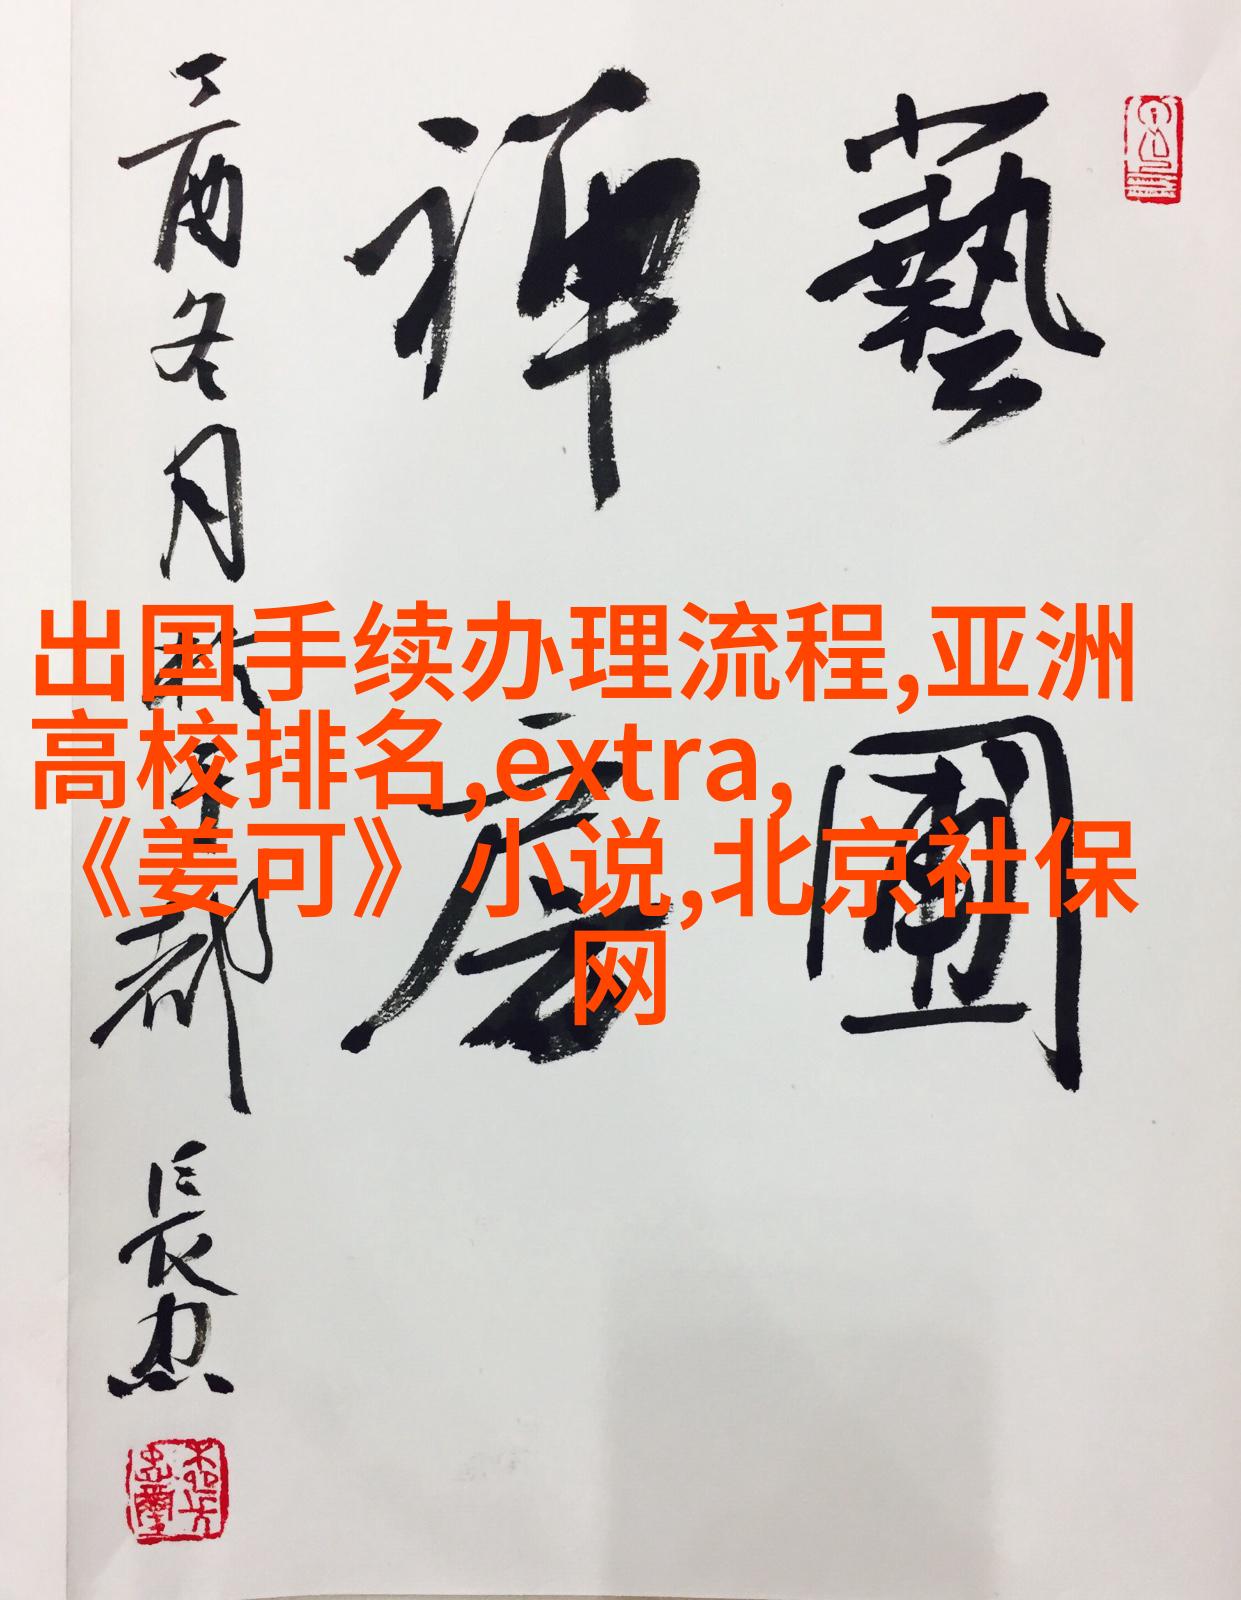 藝圃
禅房
丁酉冬月於京都
長忠
出国手续办理流程,亚洲
高校排名,extra,
《姜可》小说,北京社保
网